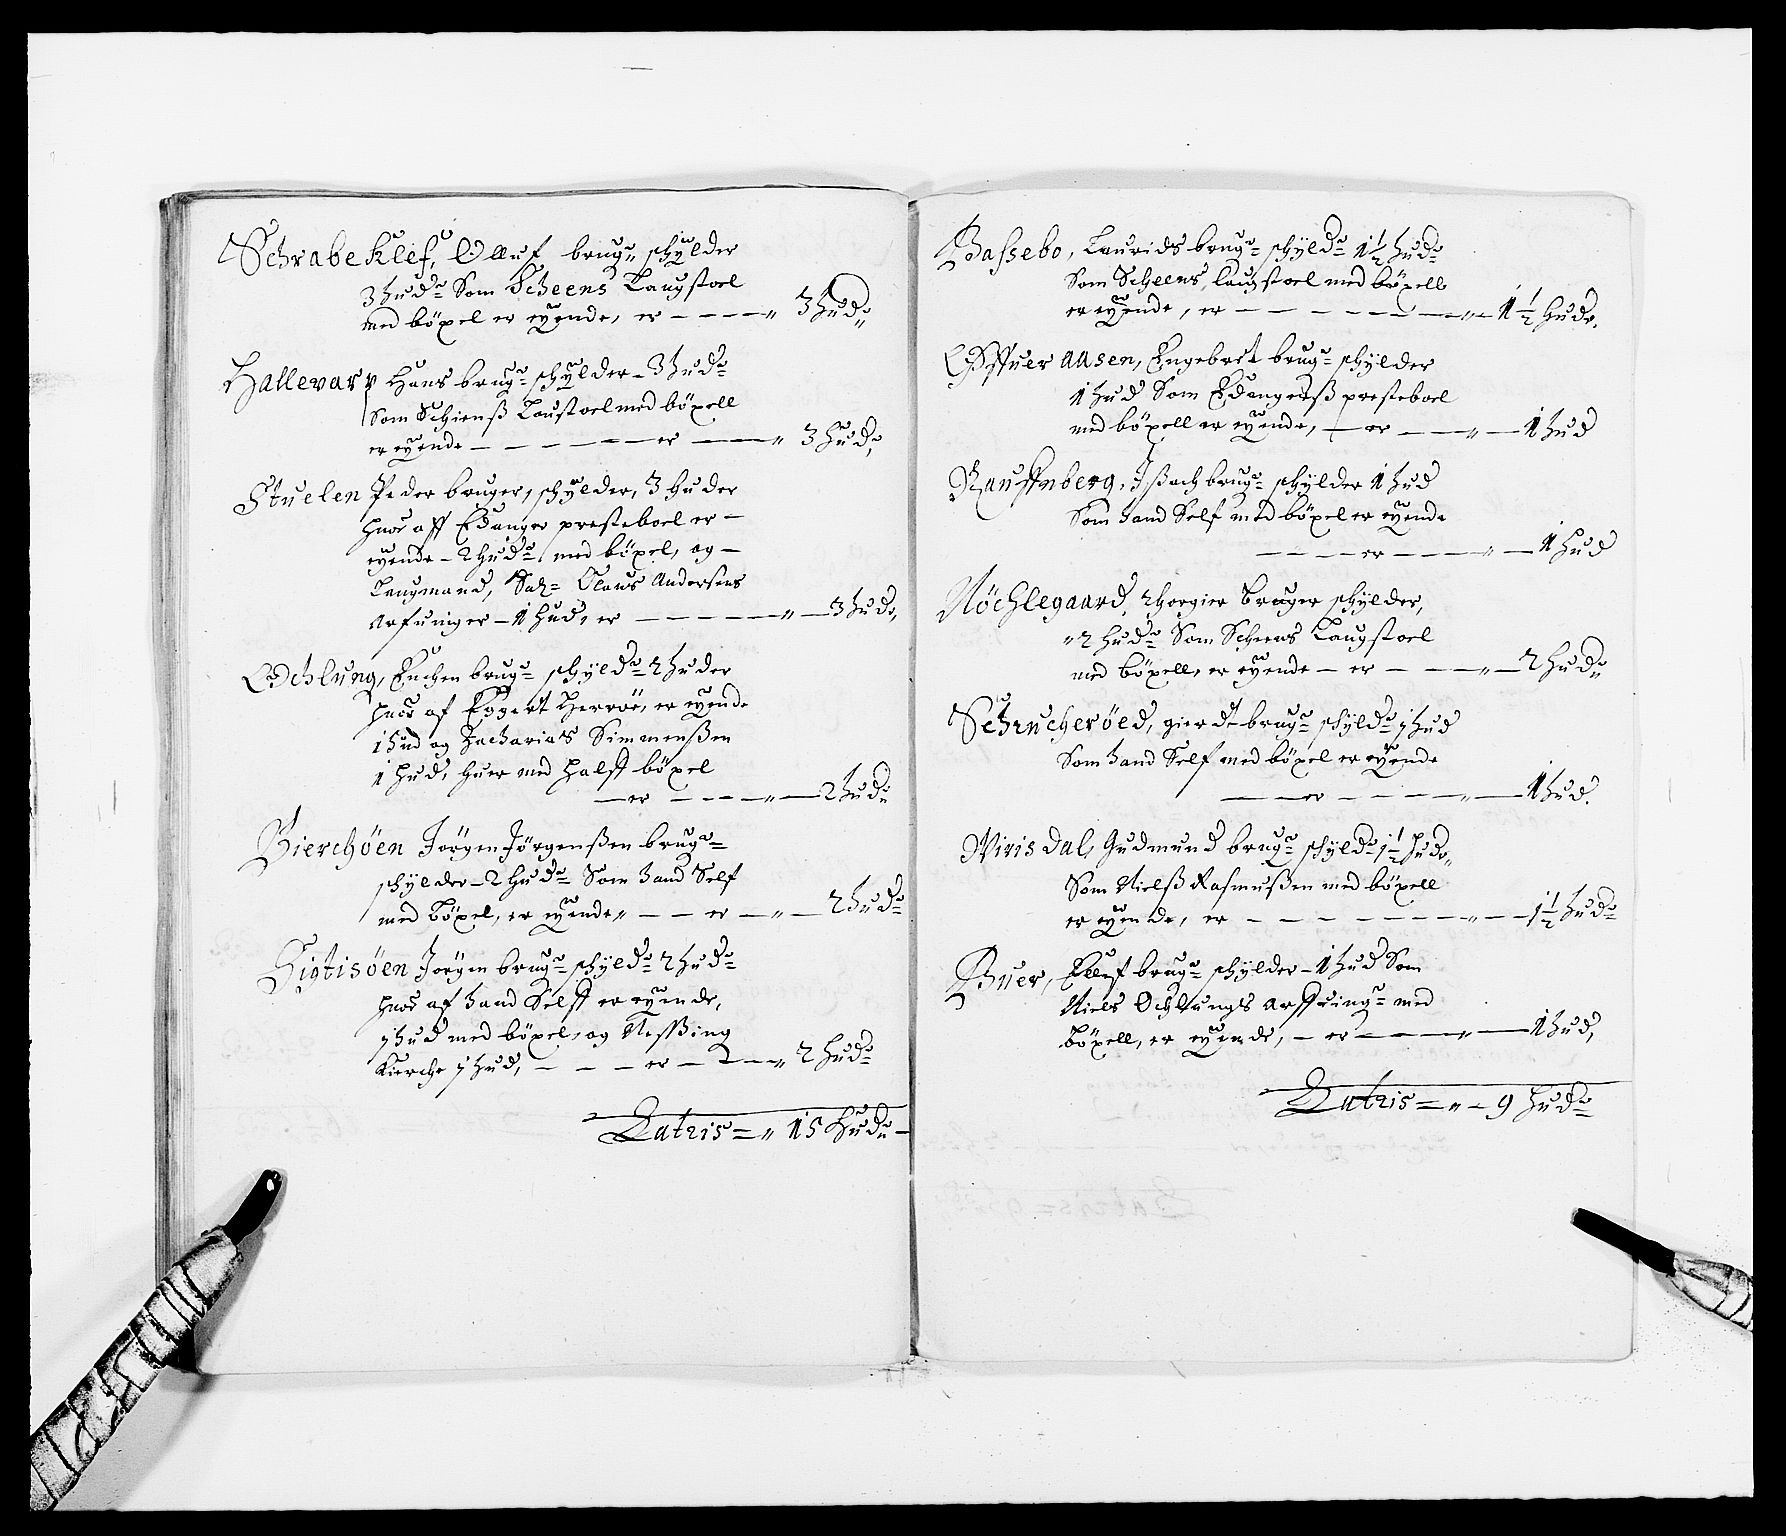 Schrabeklef, Olluf brugr schylder
3 hudr Som Scheens Laugstoel
med böxel er eyende, er — — — — „ 3 hudr
Hallevar Hans brugr schylder – 3 hudr
Som Schienß Laustoel med böxell
er eyende – – – – – er — — „ 3 hudr
Stuelen Peder bruger, schylder, 3 huder
huor aff Edanger presteboel er –
eyende – 2 hudr med böxel, og –
Laugmand, Sal= Claus Andersens
Arfuinger – 1 hud, er — — — — — „ — 3 hudr
Ochlung, brugr schyldr 2 huder
huor af Eggert Herröe, er eyende
1 hud og Zacharias Simmenßen
1 hud, huer med halff böxel
— er — — — „ — 2 hudr
Bierchöen Jörgen Jörgenßen brugr
schylder – 2 hudr Som hand Self
med böxel, er eyende „ – – er – „ – 2 hudr
Sigtisöen Jörgen brugr schyldr 2 hudr
huor af hand Selff er eyende,
1 hud med böxel, og Neßing
Kierche 1 hud, – – – er – – „ 2 hudr
Latris = „ 15 hudr –
Baßebo, Laurids brugr schyldr 1½ hudr
Som Scheens, laugstoel med böxell
er eyende, er – – – – – – — „ – 1½ hudr.
Offuer aasen, Engebret brugr schylder
1 hud Som Edangerß presteboel
med böxell er eyende, — er — — „ — 1 hud
Rauffnberg, Ißach brugr schylder 1 hud
Som hand Self med böxel er eyende
– – – er – – – „ — 1 hud
Nöchlegaard, Thorgier bruger schylder,
„ 2 hudr Som Scheens Laugstoel
med böxell, er eyende – er – – – „ — 2 hudr
Schrucheröed, gierdt brugr schyldr 1 hud
Som hand Self med böxel er eyende
— — er – – – – „ — 1 hud.
Viris dal, Gudmund brugr schyldr 1½ hudr
Som Nielß Rasmußen med böxell
er eyende, er – – – – – – – „ – – 1½ hudr
Buer, Elluf brugr schylder – 1 hud Som
Niels Ochlungs arffuingr med
böxell, er eyende, – er — — — „ — 1 hud,
Latris = „ – 9 hudr